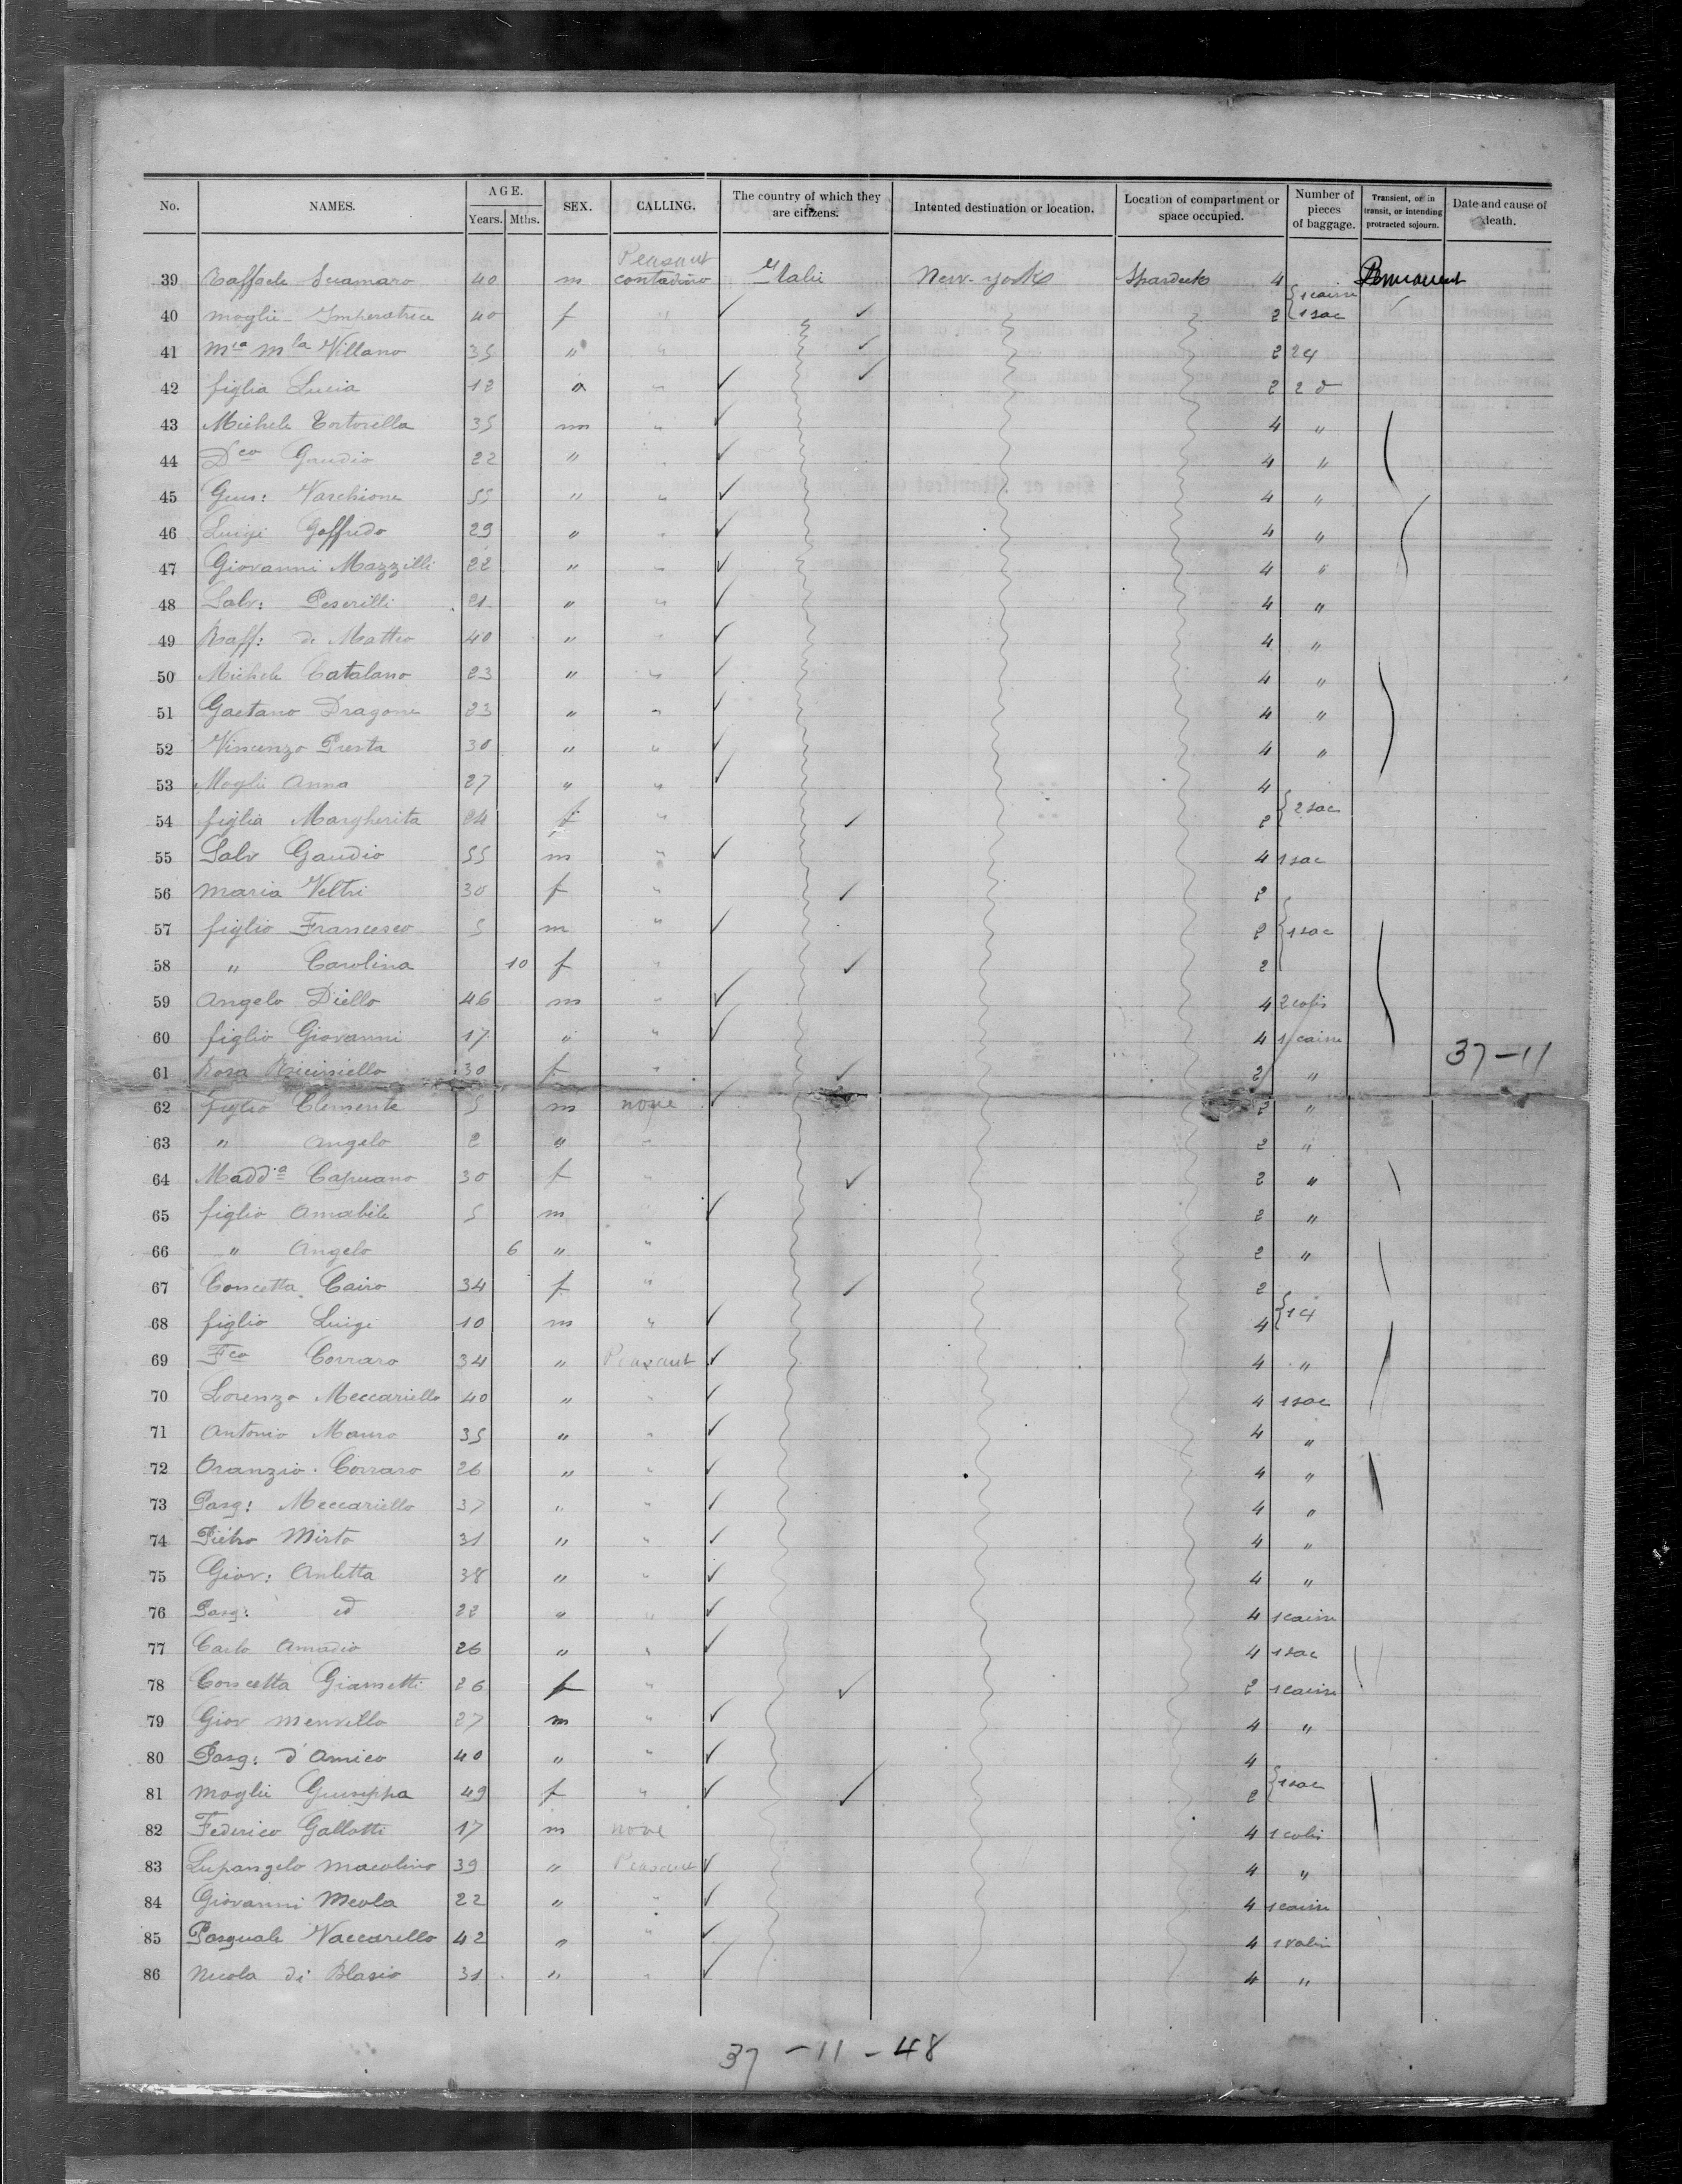 No. NAMES. AGE. Years. Mths. SEX. CALLING. The country of which they are citizens. Intented destination or location. Location of compartment or space occupied. Number of pieces of baggage. Transient, or in transit, or intending protracted sojourn. Date and cause of death.
Peasant
39 Raffaele Scramaro 40 m contadino Italie New-York 4 Permanent
40 moglie Imperatrice 40 f " 2 1 caisse 1 sac
41 Mia Mla Villano 35 " " 2 2 cf
42 figlia Lucia 12 " 2 2 d
43 Michele Tortorella 35 m " 4 "
44 Dco Gaudio 22 " " 4 "
45 Gius: Varchione 55 " " 4 "
46 Luigi Goffredo 29 " " 4 "
47 Giovanni Mazzilli 22 " " 4 "
48 Salv: Peserilli 21 " " 4 "
49 Raff: di Matteo 40 " " 4 "
50 Michele Catalano 23 " " 4 "
51 Gaetano Dragone 23 " " 4 "
52 Vincenzo Presta 30 " " 4 "
53 Moglie Anna 27 " " 4
54 figlia Margherita 24 f " 2 2 sac
55 Salv Gaudio 55 m " 4 1 sac
56 Maria Veltri 30 f " 2
57 figlio Francesco 5 m " 2 1 sac
58 " Carolina 10 f " 2
59 Angelo Diello 46 m " 4 2 colis
60 figlio Giovanni 17 " " 4 1 caisse
61 Rosa 30 f " 2 " 37-11
62 figlio Clemente 5 m none 2 "
63 " Angelo 2 " " 2 "
64 Madda Capuano 30 f " 2 "
65 figlio Amabile 5 m 2 "
66 " Angelo 6 " " 2 "
67 Concetta Cairo 34 f " 2
68 figlio Luigi 10 m " 4 1 cf
69 Fco Corraro 34 " Peasant 4 "
70 Lorenzo Meccariello 40 " " 4 1 sac
71 Antonio Mauro 35 " " 4 "
72 Oranzio Corraro 26 " " 4 "
73 Pasq: Meccariello 37 " " 4 "
74 Pietro Mirto 31 " " 4 "
75 Giov: Auletta 38 " " 4 "
76 Pasq: id 22 " " 4 1 caisse
77 Carlo Amadio 26 " " 4 1 sac
78 Concetta Giametti 26 f " 2 1 caisse
79 Giov 27 m " 4 "
80 Pasq: d'Amico 40 " " 4
81 moglie Giuseppa 49 f " 2 1 sac
82 Federico Gallotti 17 m none 4 1 colis
83 Lupangelo Macolino 39 " Peasant 4 "
84 Giovanni Meola 22 " " 4 1 caisse
85 Pasquale Vaccarello 42 " " 4 1
86 Nicola di Blasio 31 " " 4 "
37-11-48